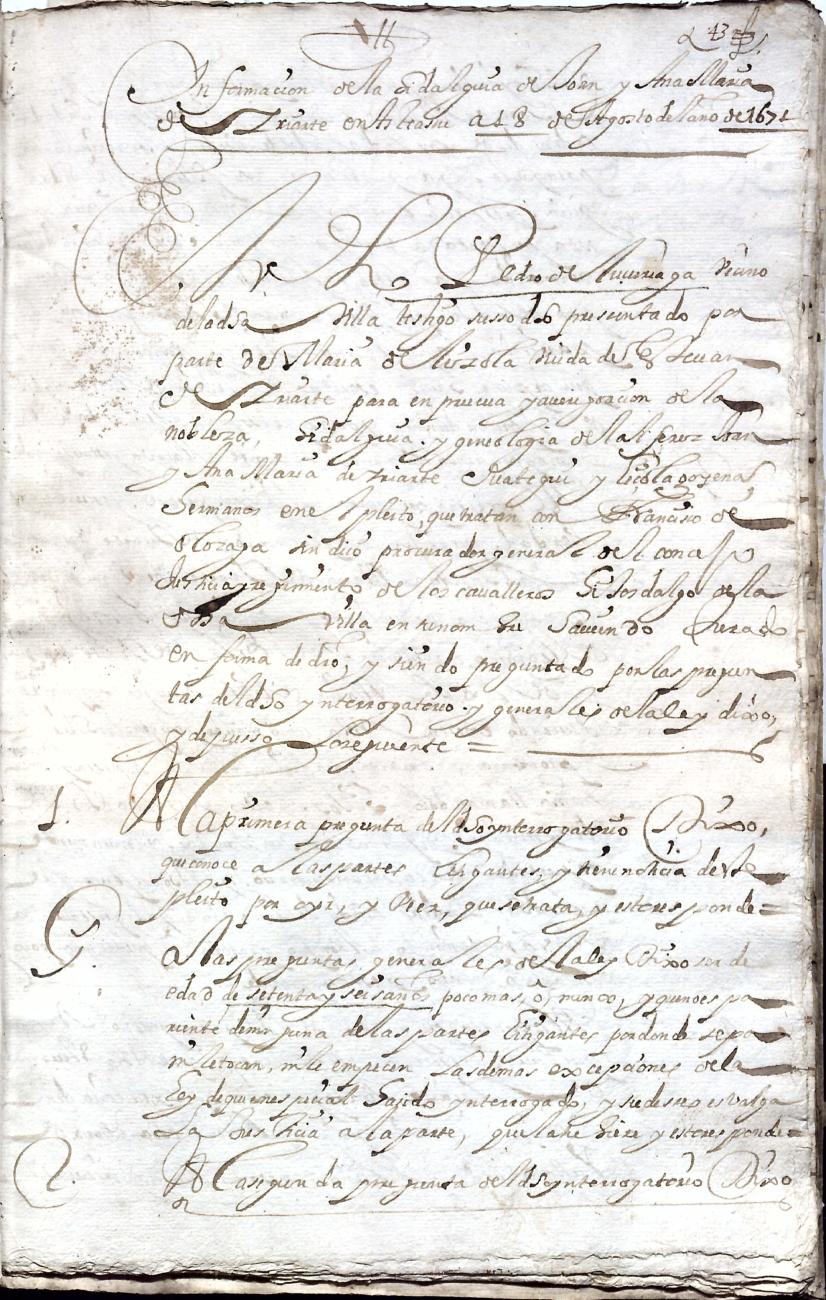 Informacion de la Hidalguia de Joan y Ana Maria
de Yriarte en Alsasu a 18 de Agosto del año de 1671
Pedro de Vecino
de la dha Villa testigo susso dho presentado por
parte de Maria de viuda de Estevan
de Yriarte para en prueva y averiguacion de la
nobleza, hidalguia y geneologia del Alferez Joan
y Ana Maria de Yriarte y
Hermanos en el pleito, que tratan con Francisco de
Olozaga sindico procurador general del concejo
Justicia y regimiento de los cavalleros hijosdalgo de la
dha Villa en su haviendo Jurado
en forma de dro, y siendo preguntado por las pregun
tas del dho ynterrogatorio y generales de la ley dixo,
y depusso lo siguiente =
1. A la primera pregunta del dho ynterrogatorio Dixo,
que conoce a las partes litigantes, y tiene noticia deste
pleito por oyr, y ver, que se trata, y esto responde =
G. A las preguntas generales de la ley Dixo ser de
edad de setenta y seis años poco mas, o, menos, y que no es pa
riente de ninguna de las partes litigantes por donde sepa
ni le tocan, ni le empecen las demas excepciones de la
ley de que en especial ha sido ynterrogado, y su deseo es valga
la Justicia a la parte, que la tubiere y esto responde =
2. A la segunda pregunta del dho ynterrogatorio Dixo